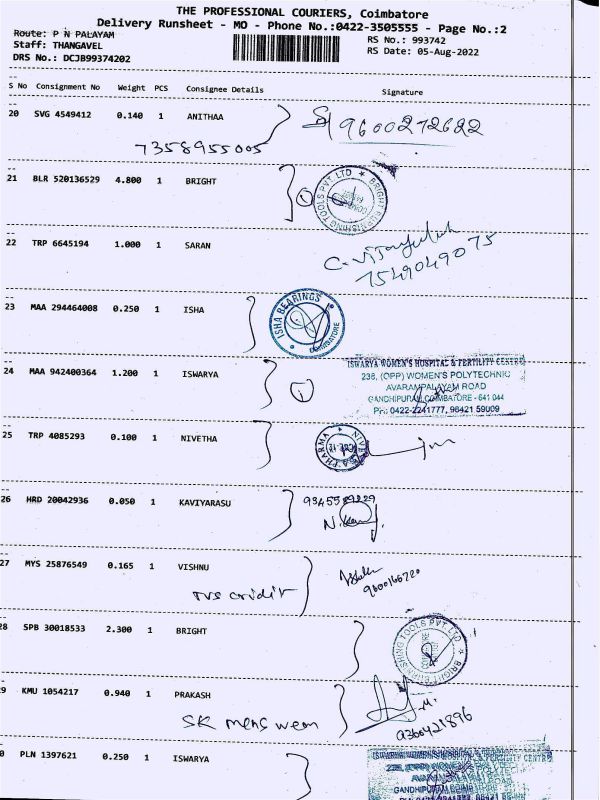 THE PROFESSIONAL COURIERS, Coimbatore
Delivery Runsheet - MO - Phone No.:0422-3505555 - Page No.:2
Route: P N PALAYAM
RS No.: 993742
Staff: THANGAVEL
RS Date: 05-Aug-2022
DRS No.: DCJB99374202
S No Consignment No Weight PCS Consignee Details Signature
20 SVG 4549412 0.140 1 ANITHAA
9600272622
7358955005
21 BLR 520136529 4.800 1 BRIGHT
1
BRIGHT TOOLS PVT. LTD
22 TRP 6645194 1.000 1 SARAN
7549049075
23 MAA 294464008 0.250 1 ISHA
ISHA BEARINGS
COIMBATORE
24 MAA 942400364 1.200 1 ISWARYA
1
ISWARYA WOMEN'S HOSPITAL & FERTILITY CENTRE
238, (OPP) WOMEN'S POLYTECHNIC
AVARAMPALAYAM ROAD
GANDHIPURAM, COIMBATORE - 641 044
Ph: 0422-2241777, 98421 59009
25 TRP 4085293 0.100 1 NIVETHA
PHARMA
26 HRD 20042936 0.050 1 KAVIYARASU
27 MYS 25876549 0.165 1 VISHNU
TVS credit
28 SPB 30018533 2.300 1 BRIGHT
BRIGHT TOOLS PVT. LTD.
9 KMU 1054217 0.940 1 PRAKASH
SK mens wear
9360421896
0 PLN 1397621 0.250 1 ISWARYA
HOSPITAL & FERTILITY CENTRE